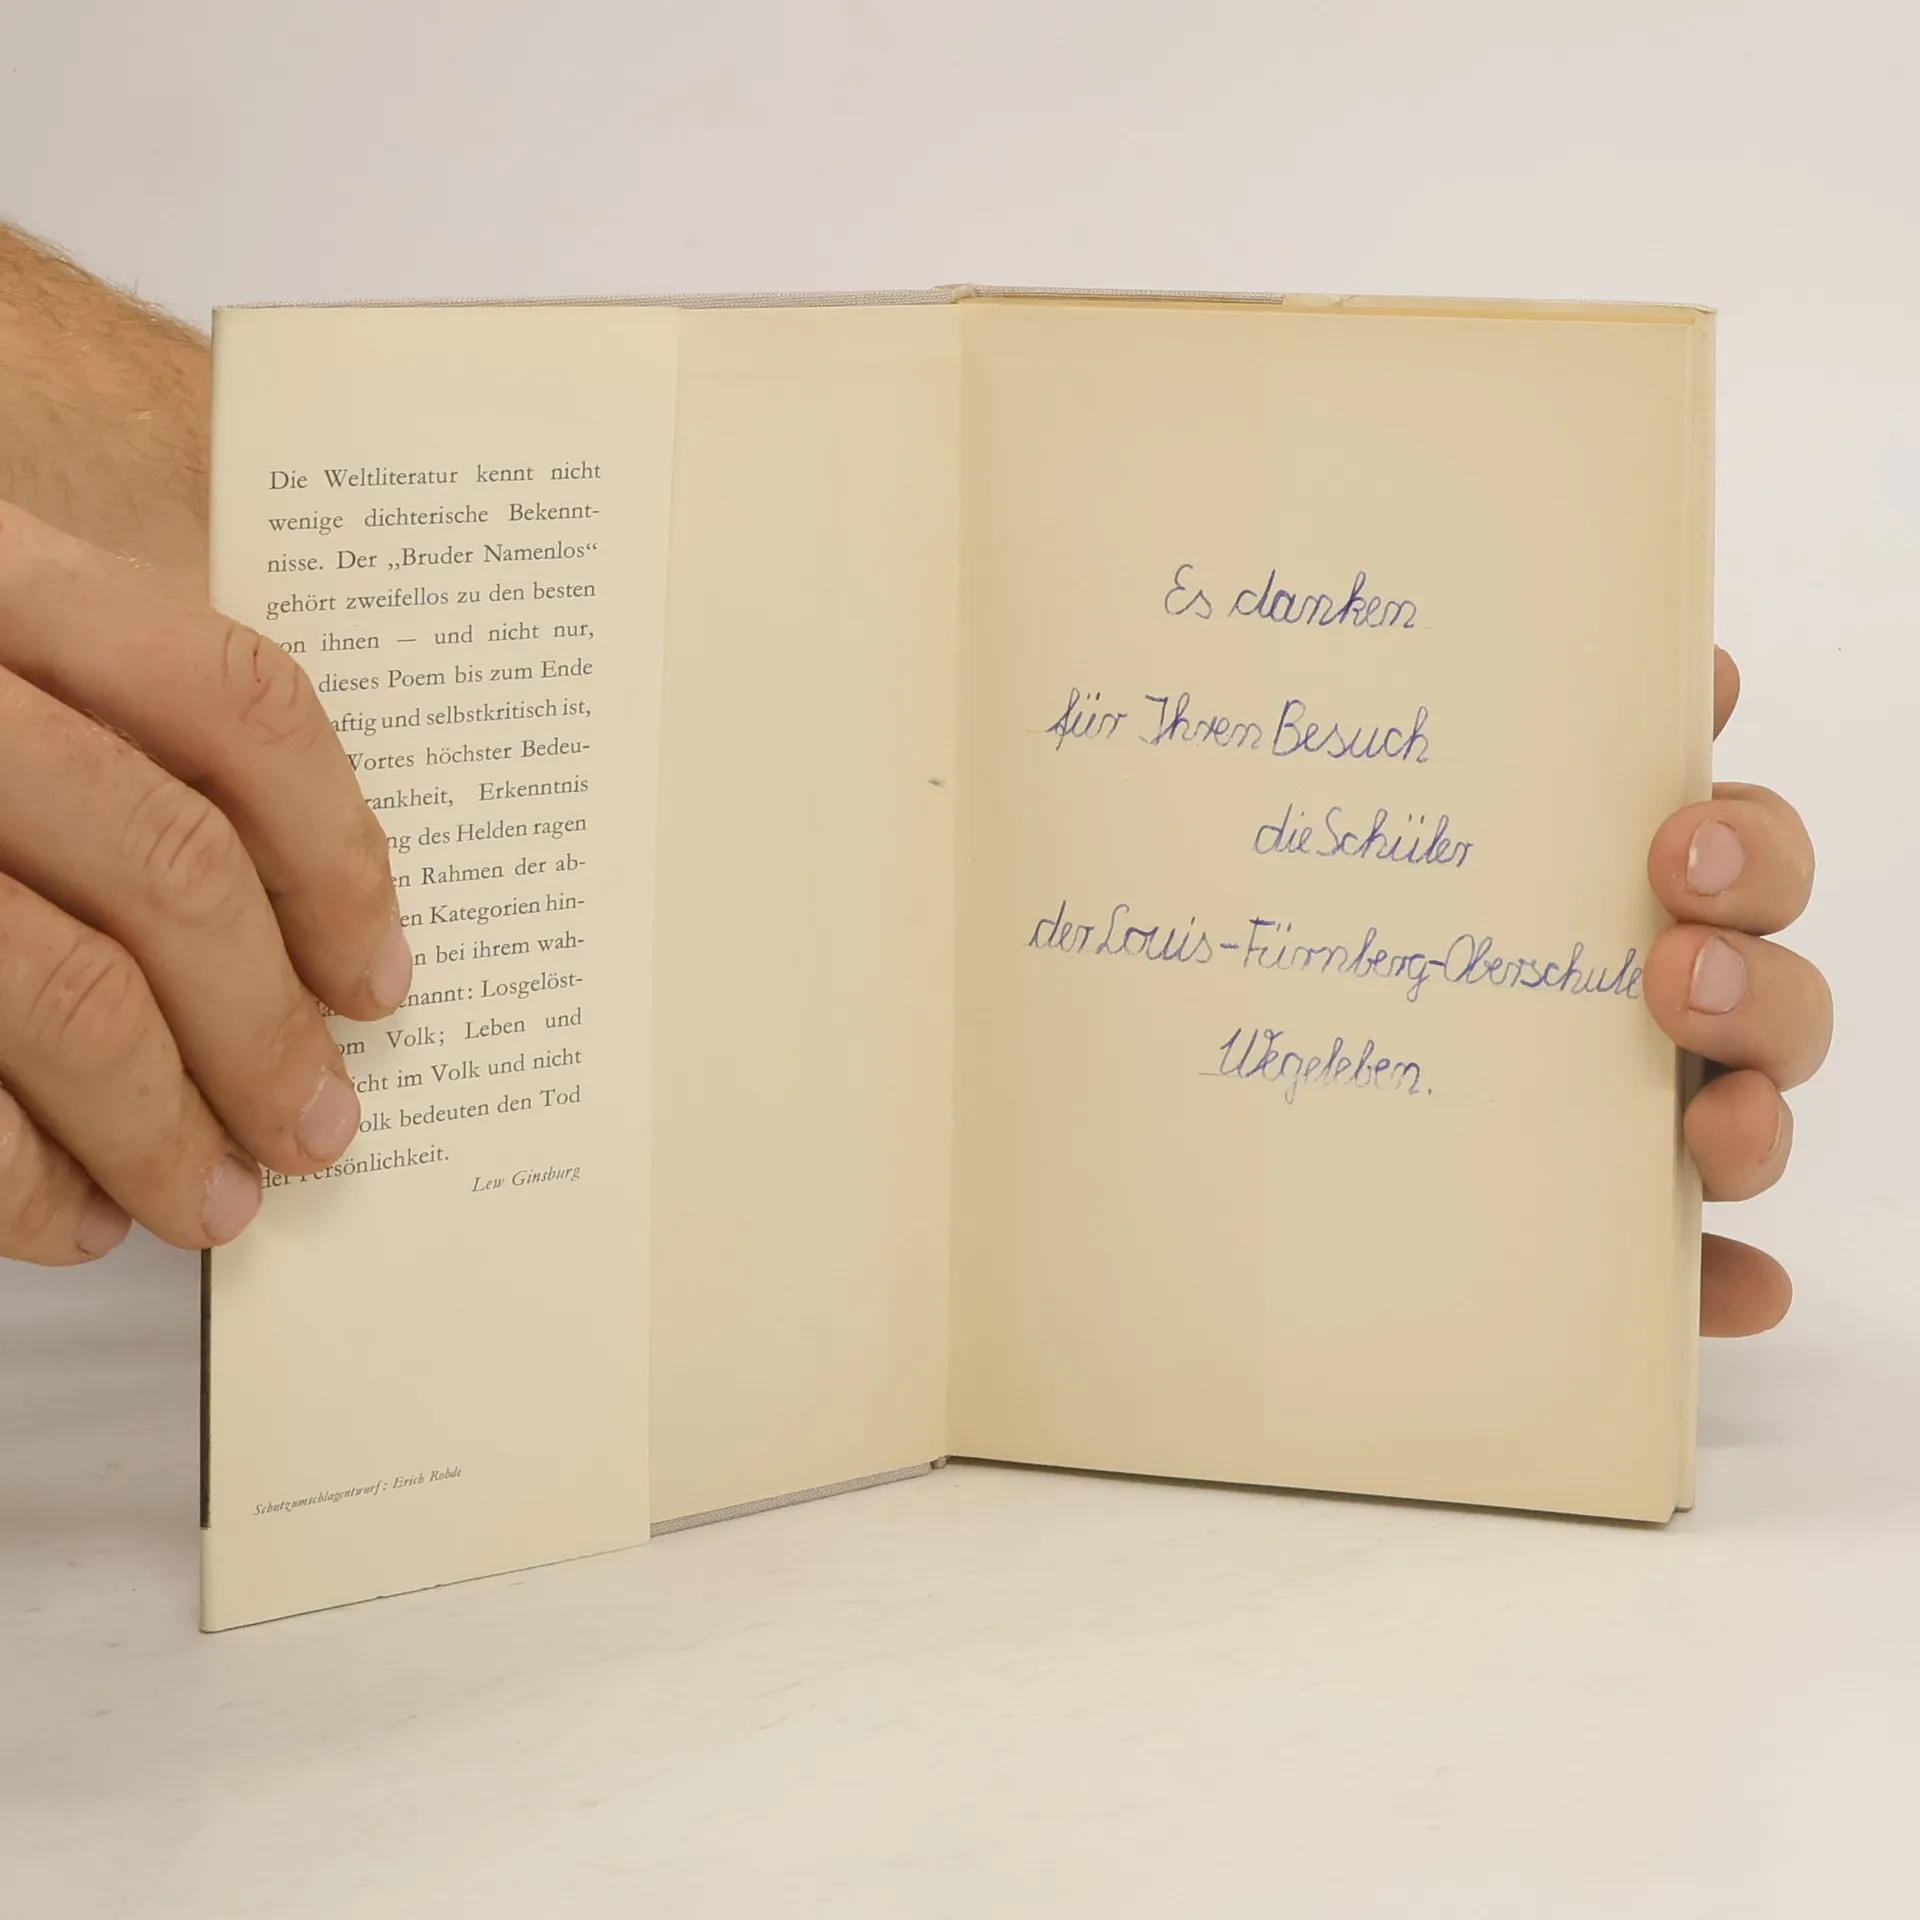 Die Weltliteratur kennt nicht
wenige dichterische Bekennt-
nisse. Der „Bruder Namenlos“
gehört zweifellos zu den besten
ihnen — und nicht nur,
dieses Poem bis zum Ende
und selbstkritisch ist,
höchster Bedeu-
Erkenntnis
des Helden ragen
Rahmen der ab-
Kategorien hin-
bei ihrem wah-
Losgelöst-
Volk; Leben und
im Volk und nicht
bedeuten den Tod
der Persönlichkeit.
Lew Ginsburg
Schutzumschlagentwurf: Erich Rohde
Es danken
für Ihren Besuch
die Schüler
der Louis-Fürnberg-Oberschule
Wegeleben.